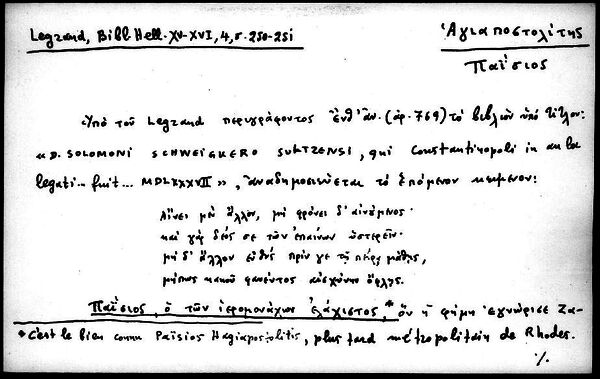 Legrand, Bibl. Hell. XV-XVI, 4, σ. 250-251
Ἁγιαποστολίτης
Παΐσιος
Ὑπὸ τοῦ Legrand περιγράφοντος ἔνθ' ἀν. (ἀρ. 769) τὸ βιβλίον ὑπὸ τίτλον:
«D. SOLOMONI SCHWEIGKERO SULTZENSI, qui Constantinopoli in
legati... fuit... MDLXXXVII», ἀναδημοσιεύεται τὸ ἑπόμενον κείμενον:
Αἴνει μὲν ἄλλον, μὴ φρόνει δ' αἰνούμενος·
καὶ γὰρ δέος σε τῶν ἐπαίνων ὑστερεῖν·
μὴ δ' ἄλλον εὐθὺς πρίν γε τῇ πείρᾳ μάθῃς,
μήπως κακοῦ φανέντος αἰσχύνην ὄφλῃς.
Παΐσιος, ὁ τῶν ἱερομονάχων ἐλάχιστος,* ὃν ἡ φήμη ἐγνώρισε Ζα-
* C'est le bien connu Païsios Hagiapostolitis, plus tard métropolitain de Rhodes.
·/.